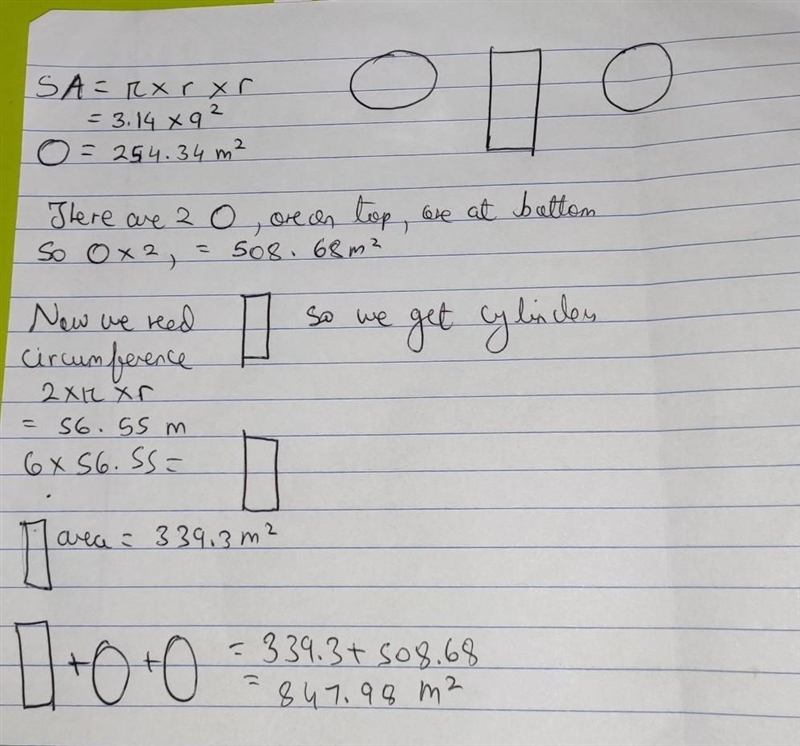 SA = π × r × r
= 3.14 × 9²
O = 254.34 m²
There are 2 O, one on top, one at bottom
So O × 2, = 508.68 m²
Now we need so we get cylinder
circumference
2 × π × r
= 56.55 m
6 × 56.55 =
area = 339.3 m²
+ O + O = 339.3 + 508.68
= 847.98 m²